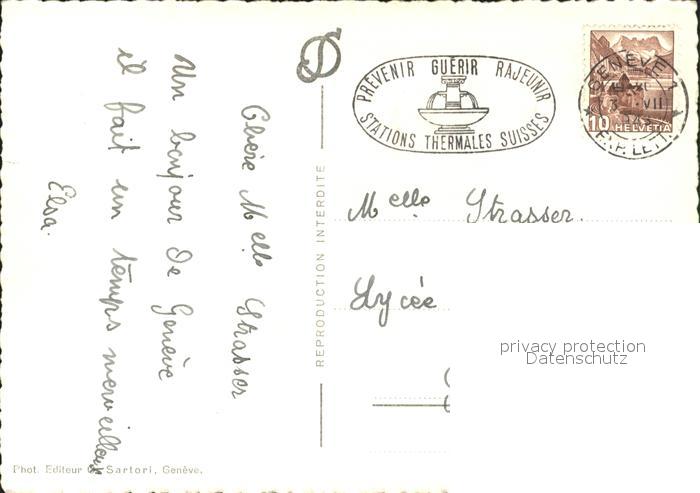 PRÉVENIR GUÉRIR RAJEUNIR
STATIONS THERMALES SUISSES
GENÈVE 1
VII
10 HELVETIA
EXP. LETT.
REPRODUCTION INTERDITE
Chère Melle Strasser
Un bonjour de Genève
il fait un temps merveilleux
Elsa.
Melle Strasser.
Lycée
privacy protection
Datenschutz
Phot. Editeur Sartori, Genève.